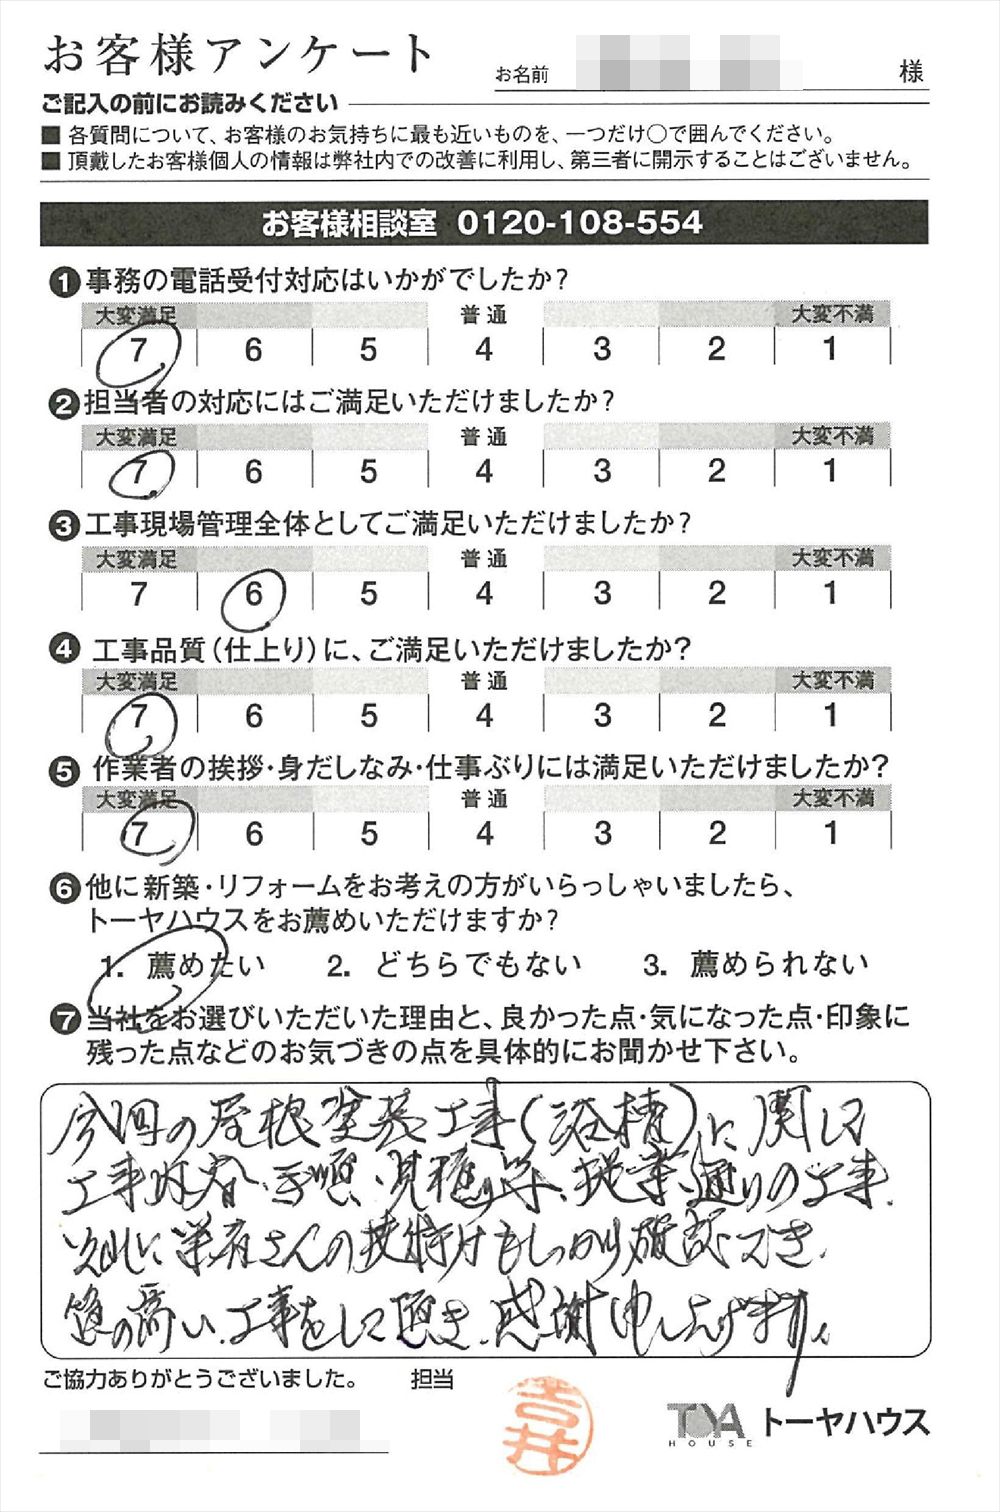 お客様アンケート
お名前 様
ご記入の前にお読みください
■ 各質問について、お客様のお気持ちに最も近いものを、一つだけ○で囲んでください。
■ 頂戴したお客様個人の情報は弊社内での改善に利用し、第三者に開示することはございません。
お客様相談室 0120-108-554
❶ 事務の電話受付対応はいかがでしたか?
大変満足 普通 大変不満
7 6 5 4 3 2 1
❷ 担当者の対応にはご満足いただけましたか?
大変満足 普通 大変不満
7 6 5 4 3 2 1
❸ 工事現場管理全体としてご満足いただけましたか?
大変満足 普通 大変不満
7 6 5 4 3 2 1
❹ 工事品質(仕上り)に、ご満足いただけましたか?
大変満足 普通 大変不満
7 6 5 4 3 2 1
❺ 作業者の挨拶・身だしなみ・仕事ぶりには満足いただけましたか?
大変満足 普通 大変不満
7 6 5 4 3 2 1
❻ 他に新築・リフォームをお考えの方がいらっしゃいましたら、
トーヤハウスをお薦めいただけますか?
1. 薦めたい 2. どちらでもない 3. 薦められない
❼ 当社をお選びいただいた理由と、良かった点・気になった点・印象に
残った点などのお気づきの点を具体的にお聞かせ下さい。
今回の屋根塗装工事( )に関して
工事内容、手順、見積り等、提案通りの工事、
さんの もしっかり確認でき、
質の高い工事をして頂き、感謝申し上げます。
ご協力ありがとうございました。 担当
吉井
TOYA HOUSE トーヤハウス